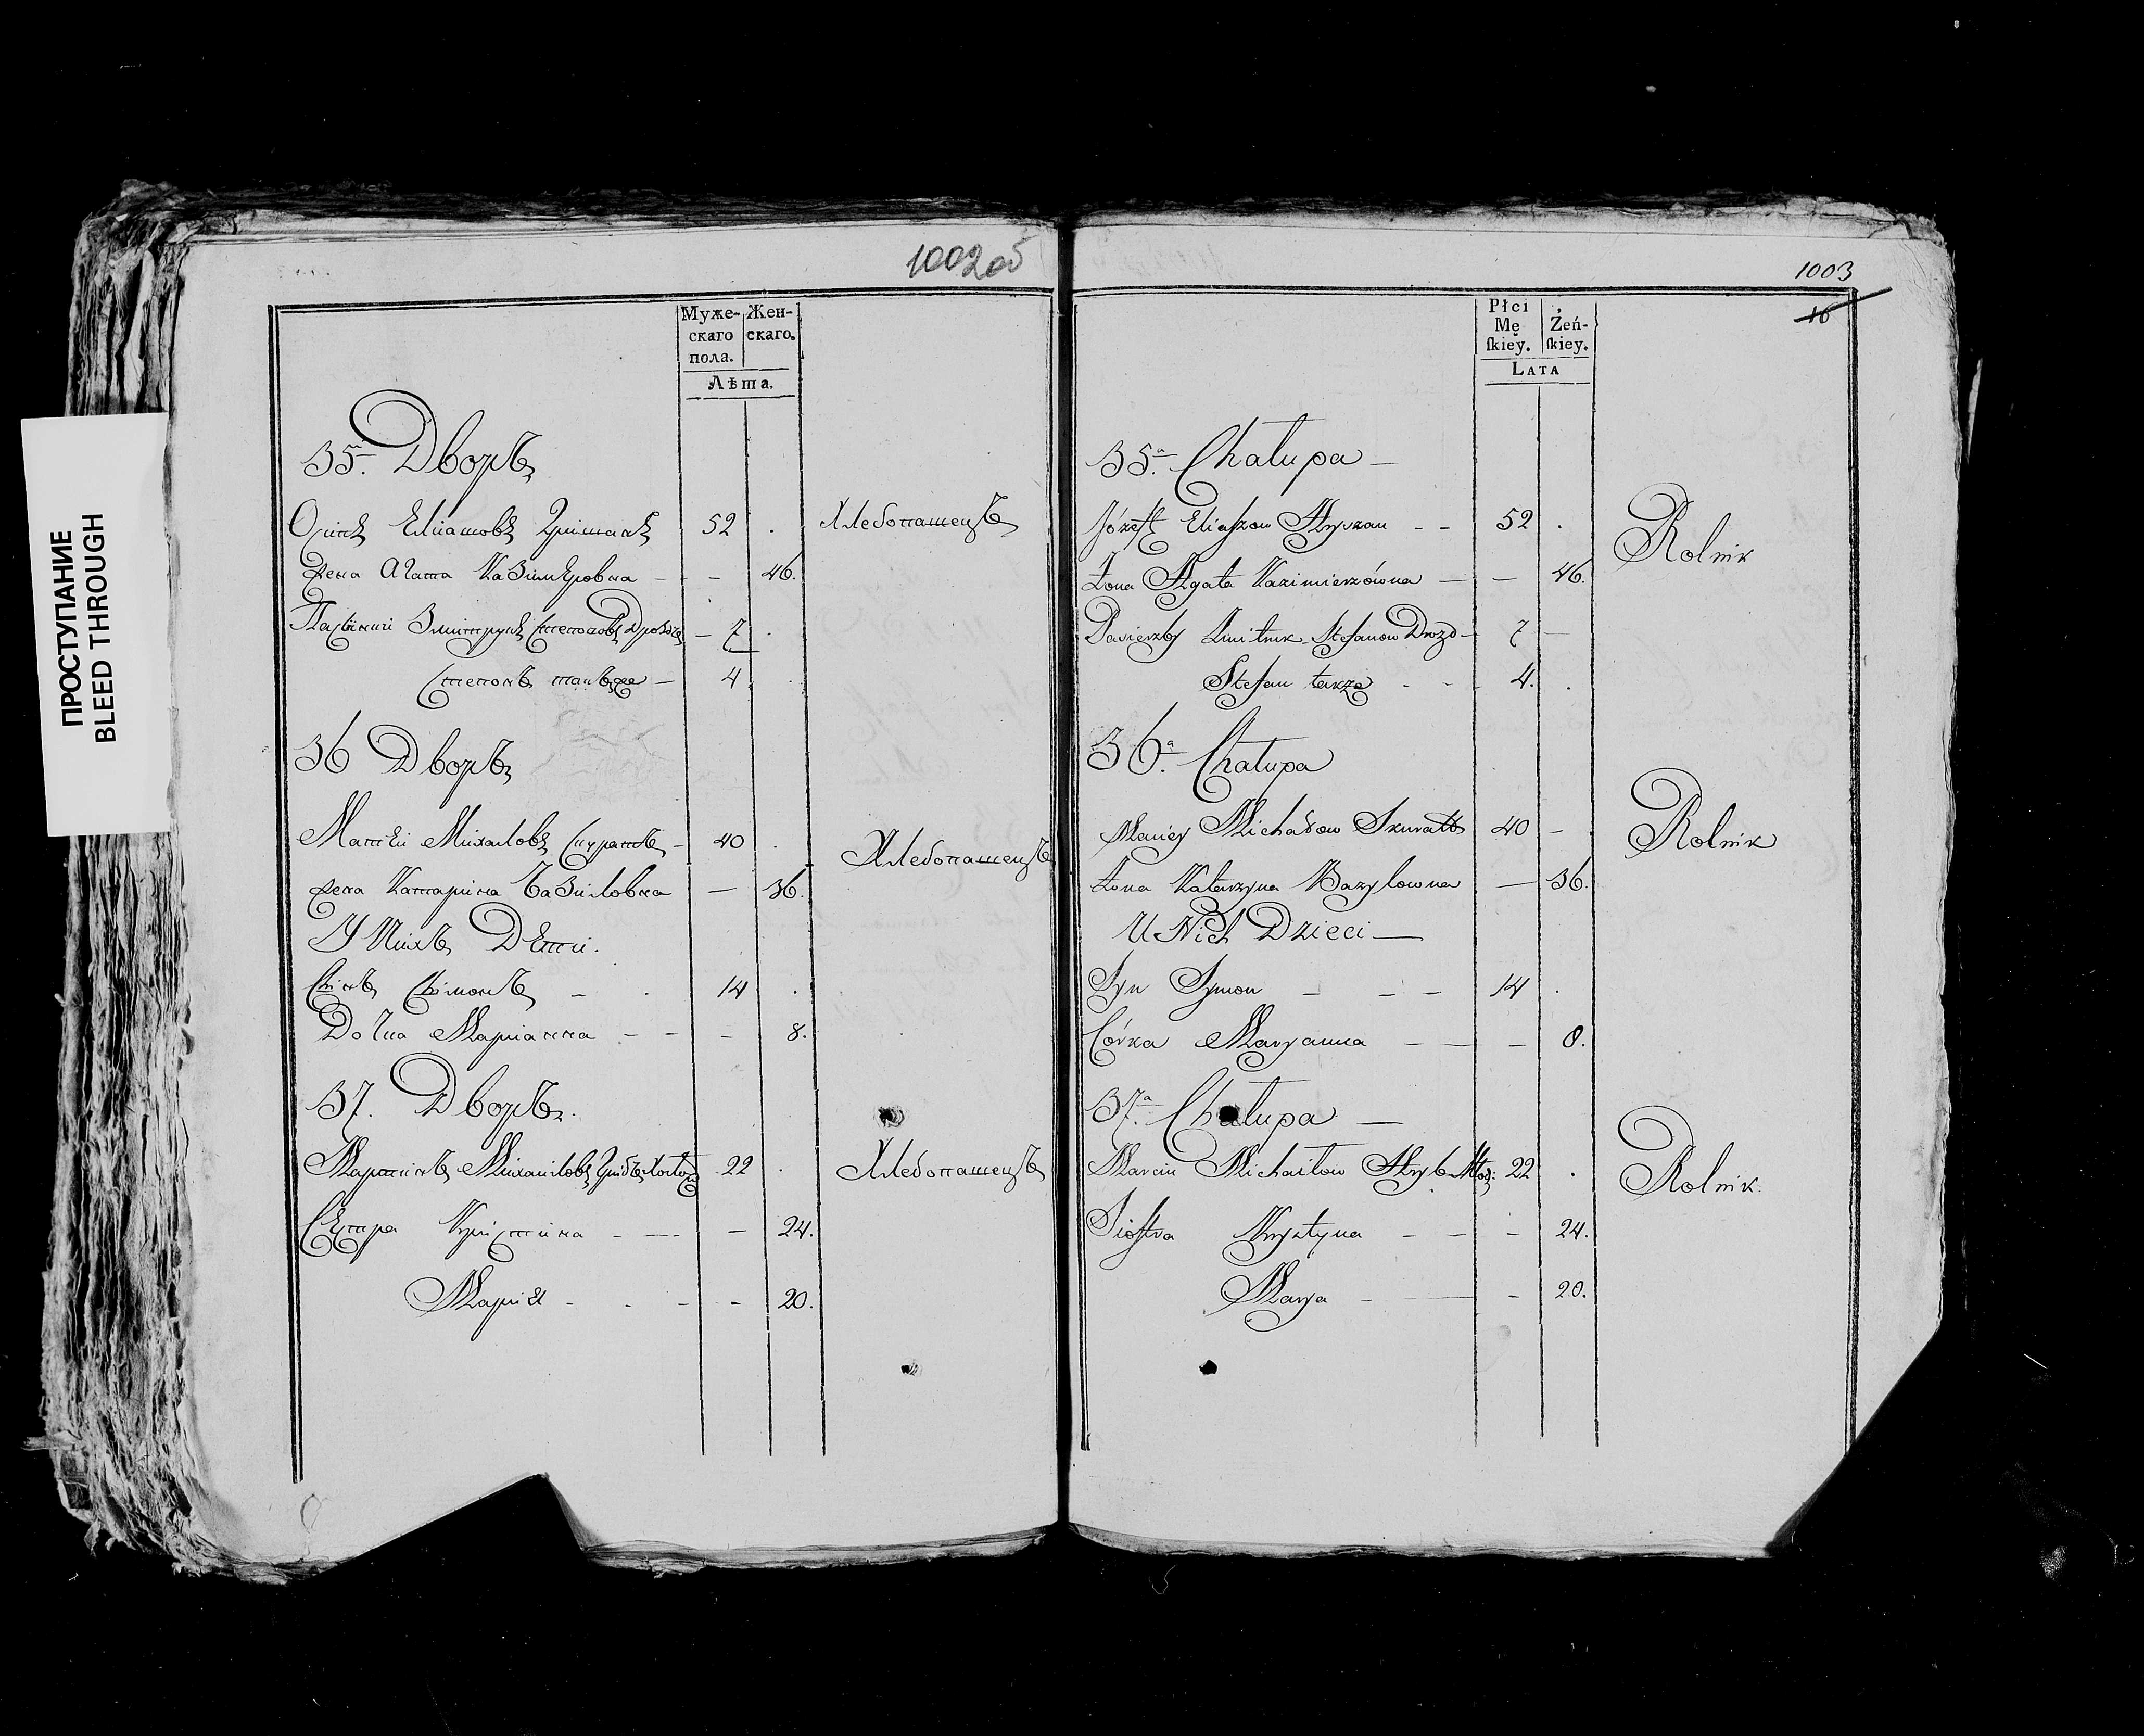 ПРОСТУПАНИЕ
BLEED THROUGH
1002об
Муже-
скаго
пола.
Жен-
скаго.
Лѣта.
35. Дворъ
Осипъ Еліашовъ 52 Хлебопашецъ
Жена Агата Казимѣровна — — 46.
Степановъ Дроздъ — 7
Степанъ — 4
36 Дворъ
Матѣй Михаловъ Скуратъ — 40 Хлебопашецъ
Жена Катарина Базиловна — 36.
У Нихъ Дети.
Сынъ Сымонъ — 14
Дочка Марианна — — — 8.
37. Дворъ.
Мартинъ Михаиловъ 22 Хлебопашецъ
Сестра Кристина — — — 24.
Мария — — — 20.
1003
16
Płci
Mę
ſkiey.
Żeń-
ſkiey.
LATA
35.a Chałupa —
Józeff Eliaszow — — 52 Rolnik
Żona Agata Kazimierzówna — — 46.
Stefanow Drozd — 7 —
Stefan takze — — 4.
36.a Chałupa
Maciey Michałow Skuratt 40 — Rolnik
Żona Katarzyna Bazylowna — 36.
U Nich Dzieci —
Syn Symon — — — 14
Córka Maryanna — — — 8.
37.a Chałupa —
Marcin Michaiłow Hryb 22 Rolnik.
Siostra Krystyna — — — 24.
Marya — — — 20.